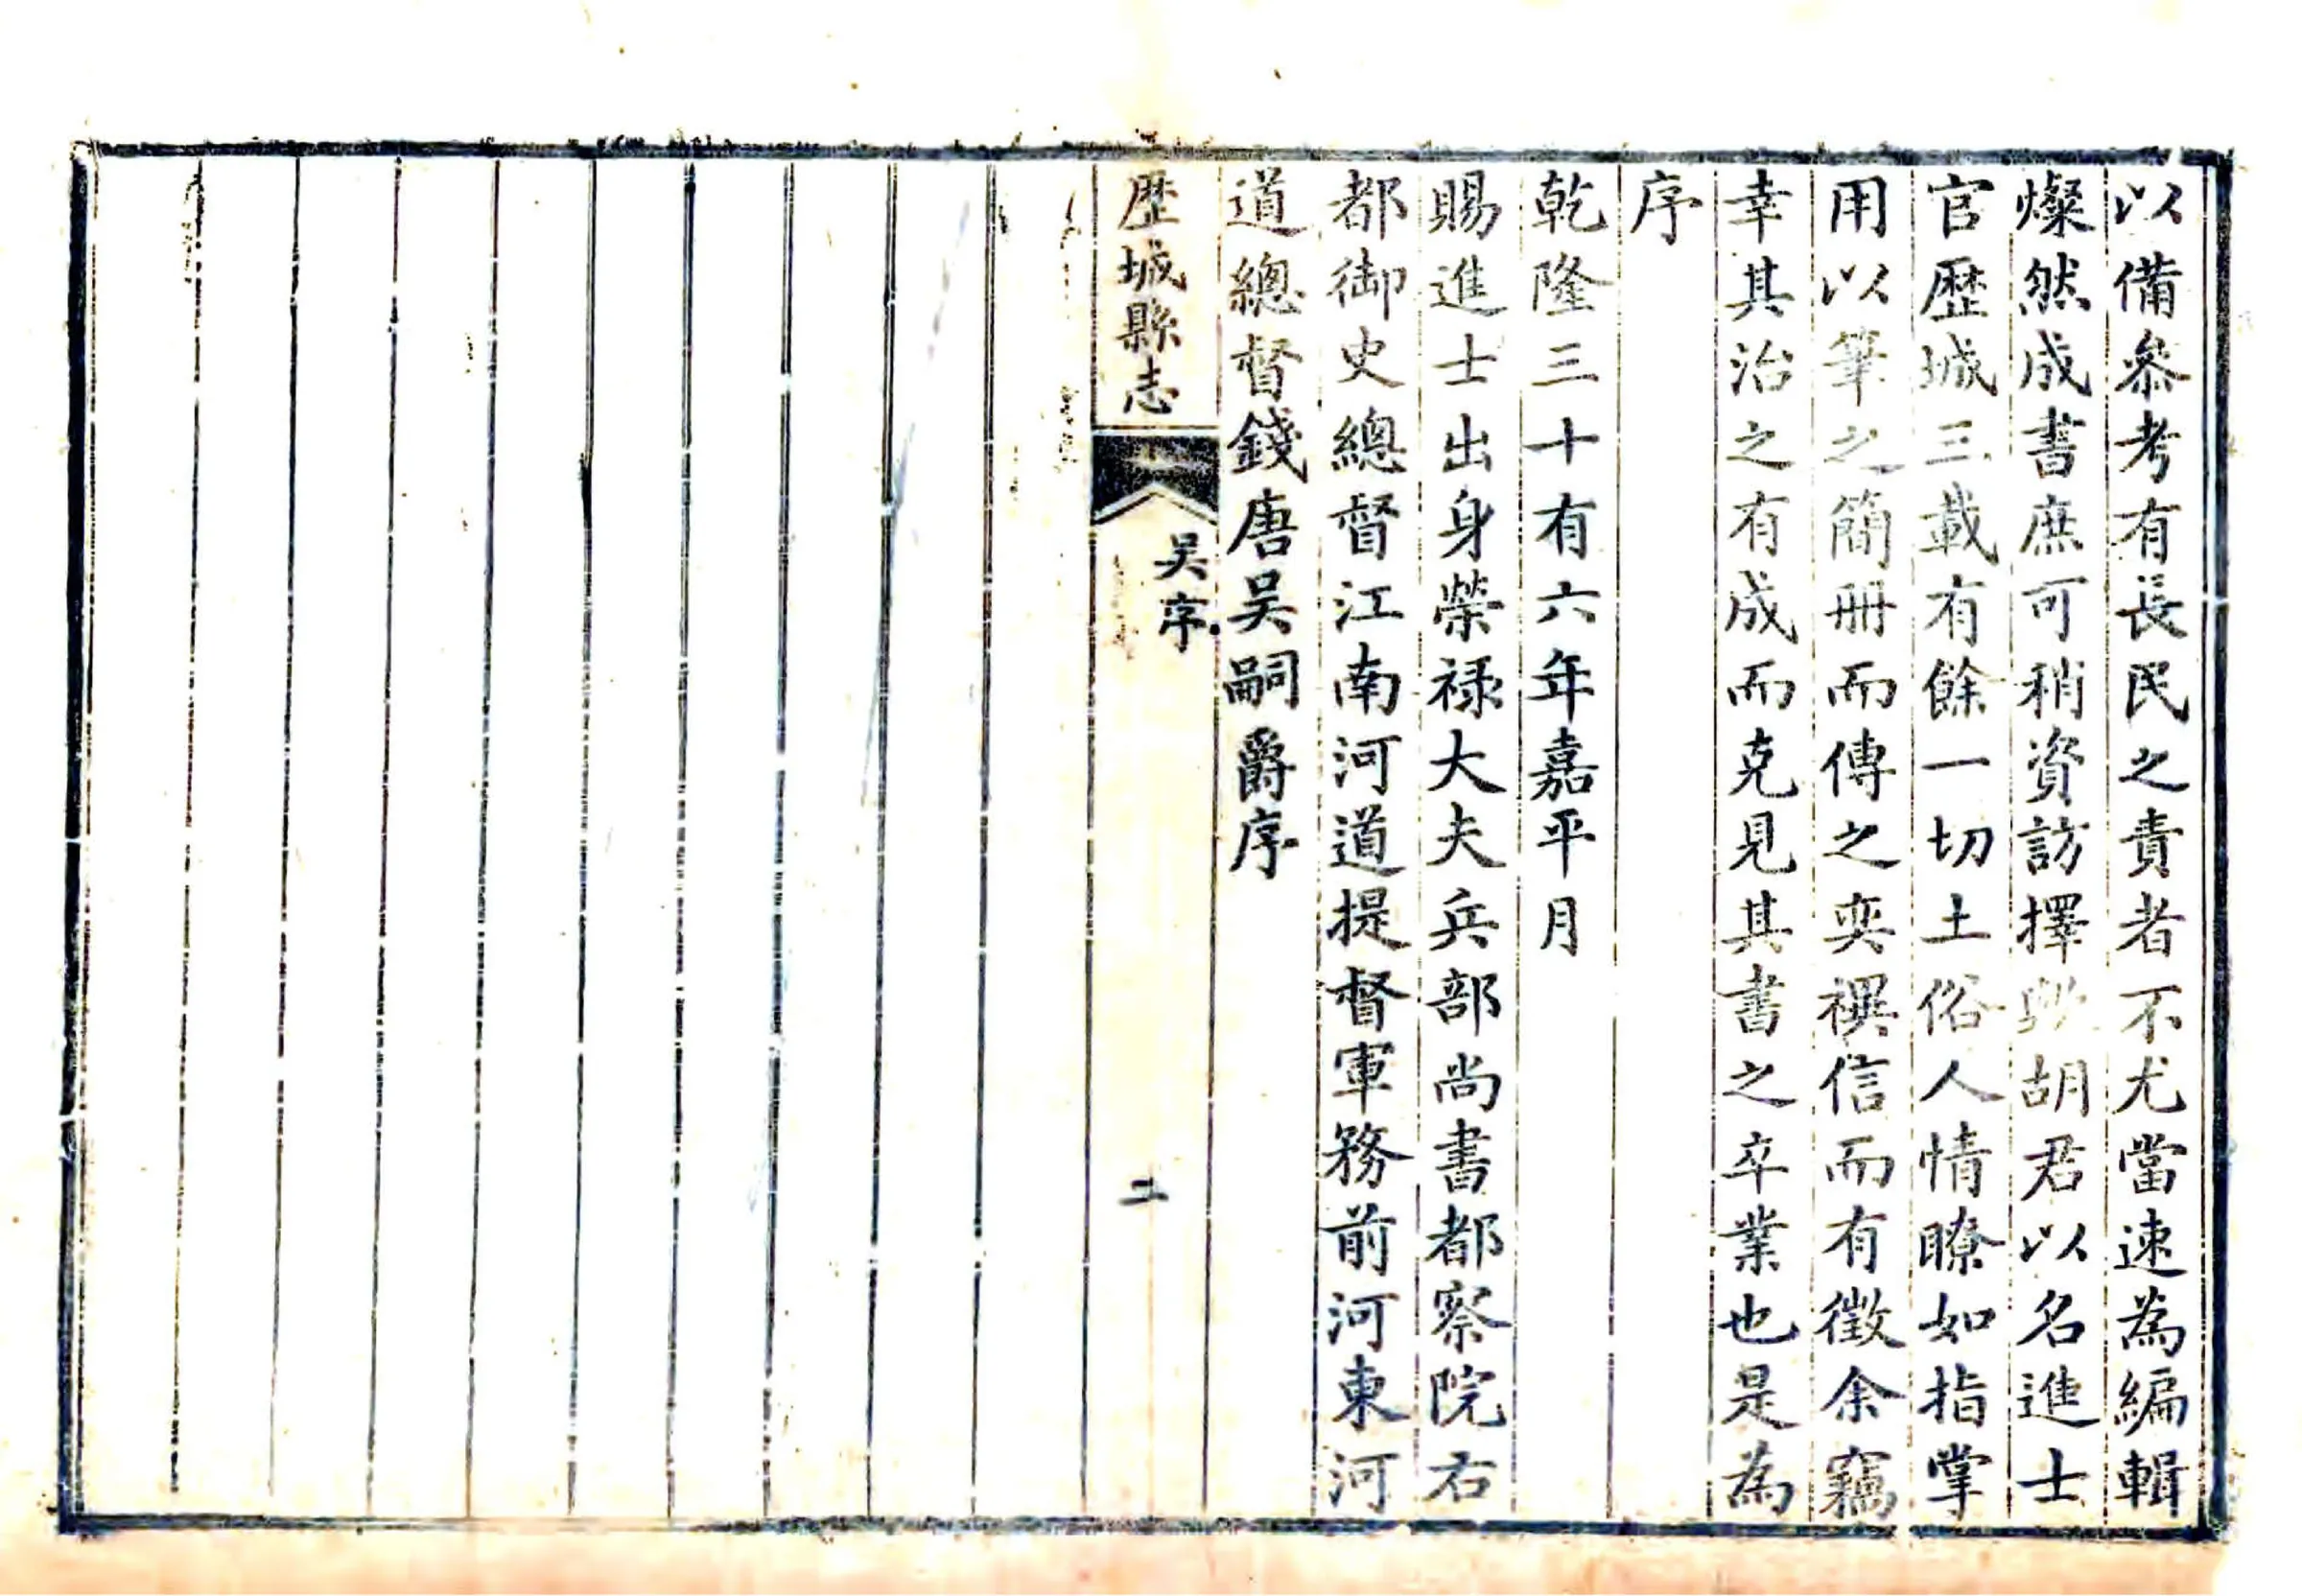 以備參考有長民之責者不尤當速為編輯
燦然成書庶可稍資訪擇歟胡君以名進士
官歷城三載有餘一切土俗人情瞭如指掌
用以筆之簡冊而傳之奕禩信而有徵余竊
幸其治之有成而克見其書之卒業也是為
序
乾隆三十有六年嘉平月
賜進士出身榮祿大夫兵部尚書都察院右
都御史總督江南河道提督軍務前河東河
道總督錢唐吳嗣爵序
歷城縣志
吳序
二